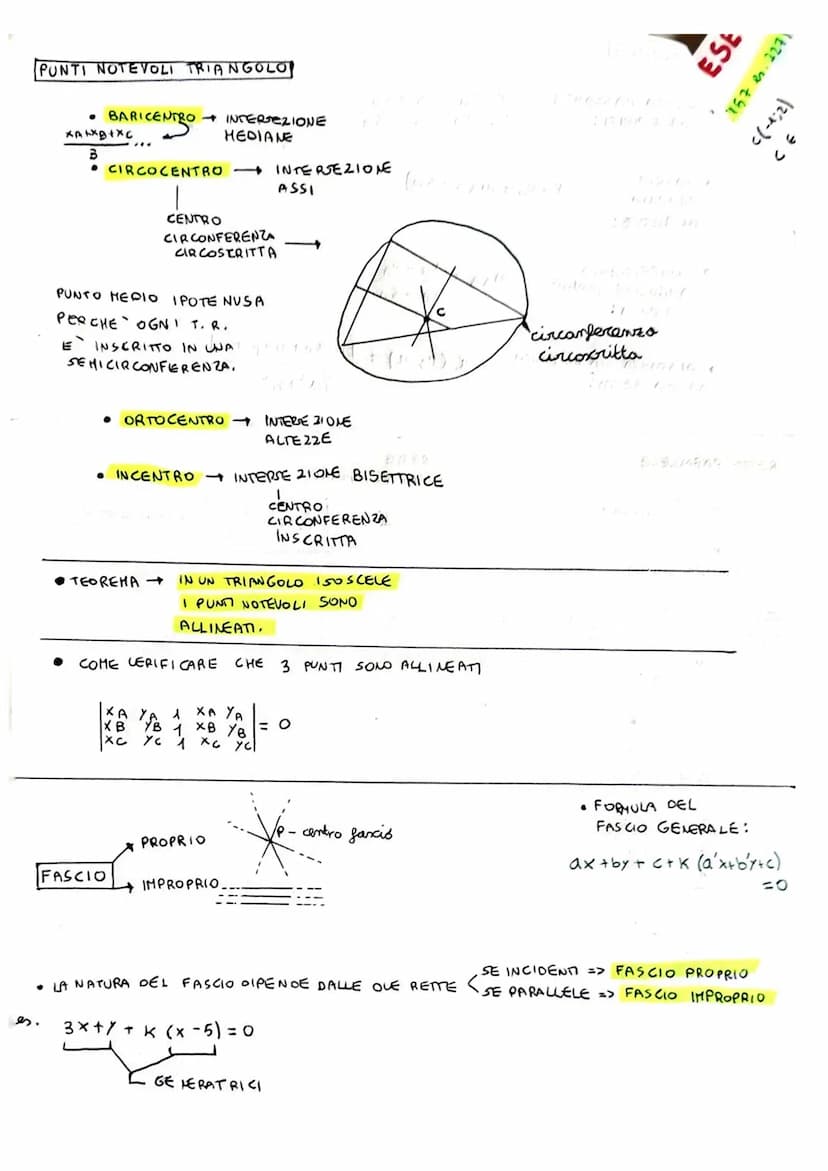 PUNTI NOTEVOLI TRIANGOLO
ESE
157 es. 227
C(-1;2)
• BARICENTRO → INTERSEZIONE
MEDIANE
xA+xB+xC ...
3
• CIRCOCENTRO → INTERSEZIONE
ASSI
CENTRO
CIRCONFERENZA
CIRCOSCRITTA
C
circonferenza
circoscritta
PUNTO MEDIO IPOTENUSA
PERCHE` OGNI T.R.
E` INSCRITTO IN UNA
SEMICIRCONFERENZA.
• ORTOCENTRO → INTERSEZIONE
ALTEZZE
• INCENTRO → INTERSEZIONE BISETTRICE
CENTRO
CIRCONFERENZA
INSCRITTA
• TEOREMA → IN UN TRIANGOLO ISOSCELE
I PUNTI NOTEVOLI SONO
ALLINEATI.
• COME VERIFICARE CHE 3 PUNTI SONO ALLINEATI
|xA yA 1 xA yA|
|xB yB 1 xB yB| = 0
|xC yC 1 xC yC|
FASCIO
PROPRIO
P - centro fascio
IMPROPRIO
• FORMULA DEL
FASCIO GENERALE:
ax+by+c+K(a'x+b'y+c)
=0
• LA NATURA DEL FASCIO DIPENDE DALLE DUE RETTE
SE INCIDENTI => FASCIO PROPRIO
SE PARALLELE => FASCIO IMPROPRIO
es. 3x+y+K(x-5)=0
GENERATRICI